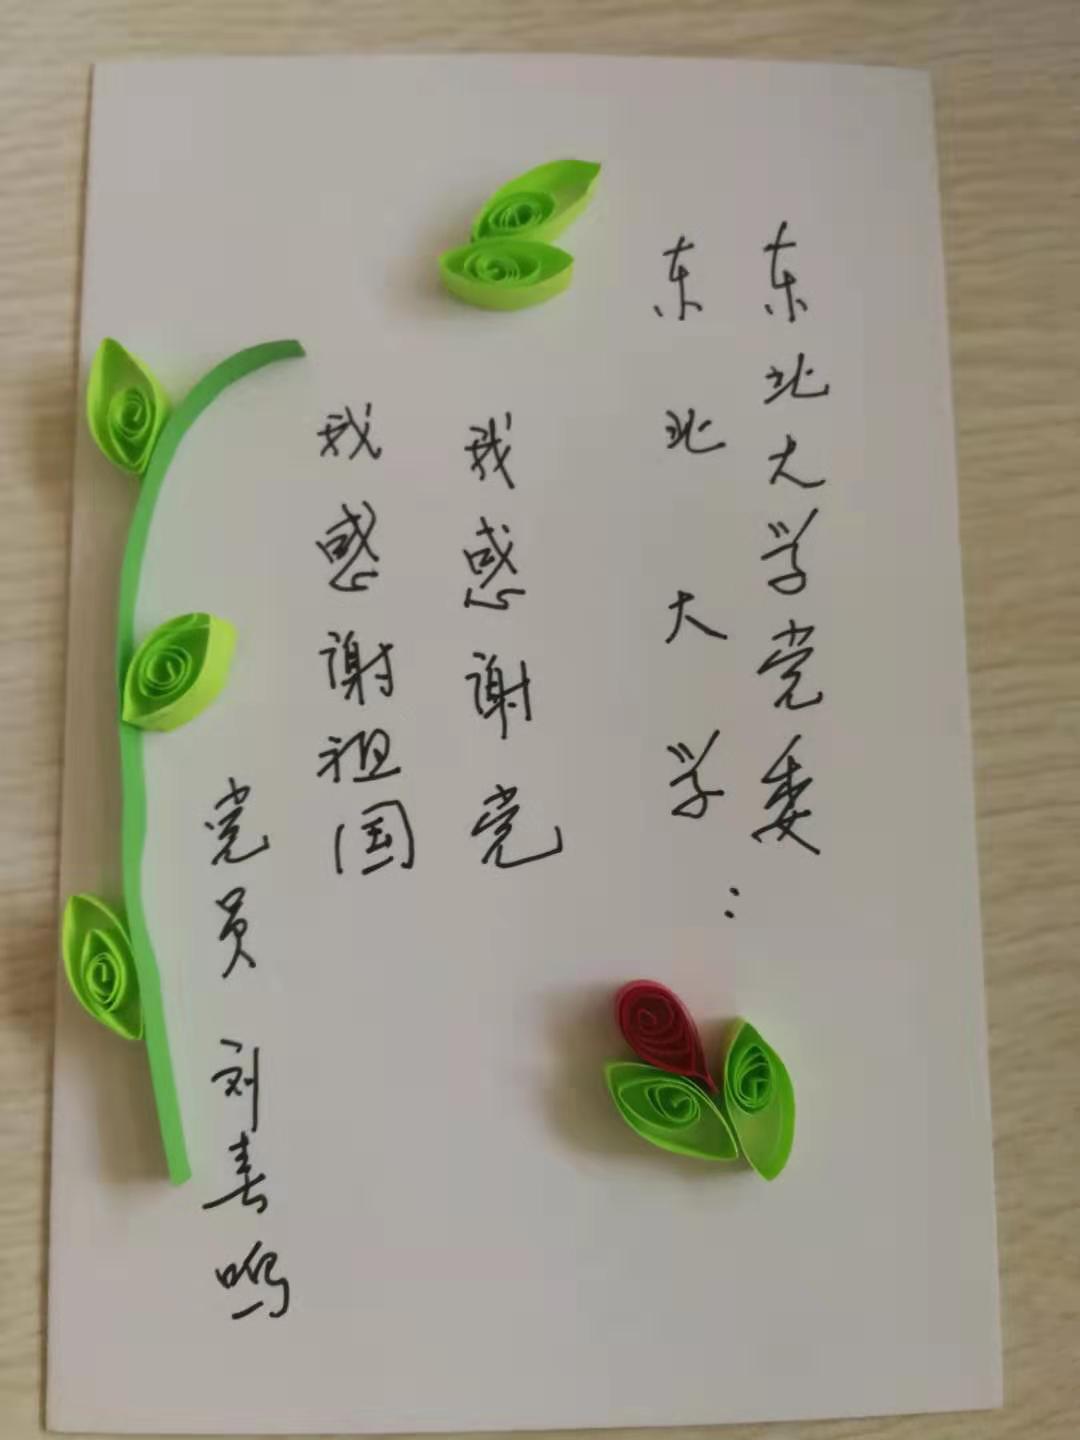 东北大学党委
东北大学:
我感谢党
我感谢祖国
党员 刘春鸣